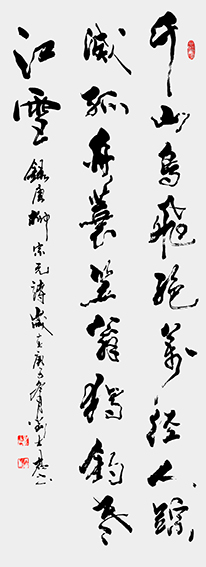 千山鳥飛絶萬徑人踪
滅孤舟蓑笠翁獨釣寒
江雪
録唐柳宗元詩歲在庚子月